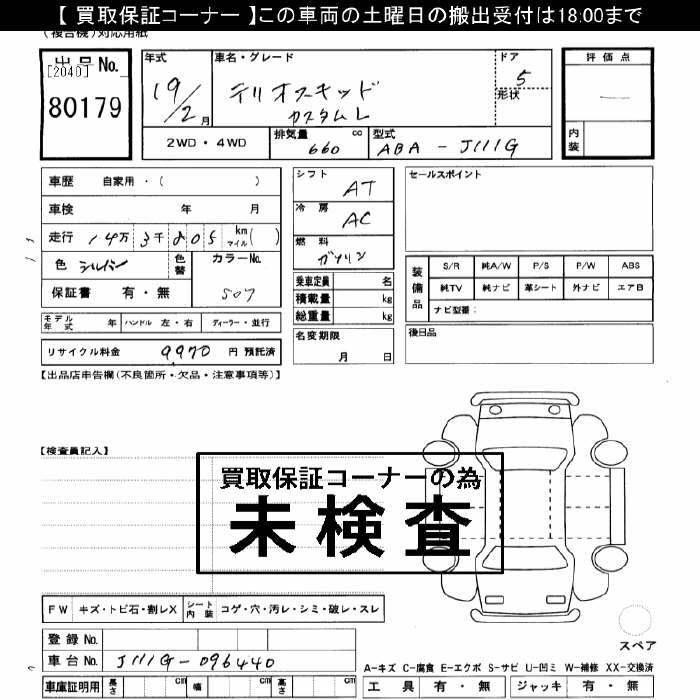 【 買取保証コーナー 】この車両の土曜日の搬出受付は18:00まで
(複合機)対応用紙
出品No.
[2040]
80179
年式
19/2月
車名・グレード
テリオスキッド
カスタムL
ドア
5
形状
評価点
―
内装
2WD・4WD
排気量 cc
660
型式
ABA - J111G
車歴 自家用・( )
車検 年 月
走行 14万 3千 805 km マイル( )
色 シルバー
色替
カラーNo.
S07
保証書 有・無
モデル年式 年
ハンドル 左・右
ディーラー・並行
リサイクル料金 9970 円 預託済
シフト
AT
冷房
AC
燃料
ガソリン
乗車定員 名
積載量 kg
総重量 kg
名変期限
月 日
セールスポイント
装備品
S/R 純A/W P/S P/W ABS
純TV 純ナビ 革シート 外ナビ エアB
ナビ型番:
後日品
【出品店申告欄(不良箇所・欠品・注意事項等)】
【検査員記入】
買取保証コーナーの為
未検査
FW キズ・トビ石・割レX
シート内装 コゲ・穴・汚レ・シミ・破レ・スレ
登録No.
車台No. J111G-096440
車庫証明用 長さ cm 幅 cm 高さ cm
スペア
A-キズ C-腐食 E-エクボ S-サビ U-凹ミ W-補修 XX-交換済
工具 有・無 ジャッキ 有・無